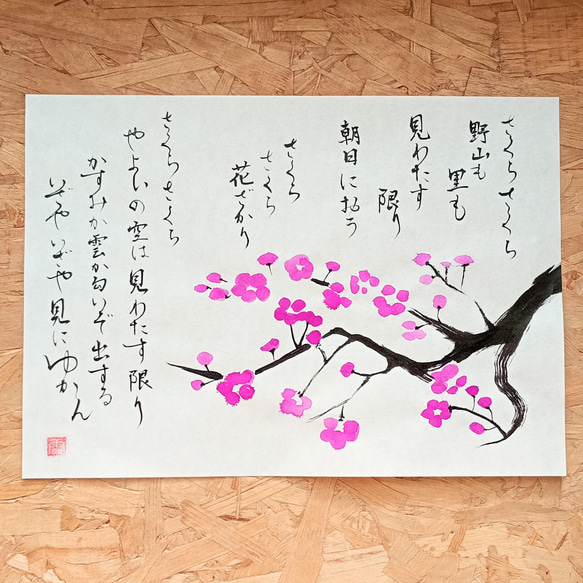 さくら さくら
野山も
里も
見わたす
限り
朝日に匂う
さくら
さくら
花ざかり
さくらさくら
やよいの空は見わたす限り
かすみか雲か匂いぞ出する
いざやいざや見にゆかん